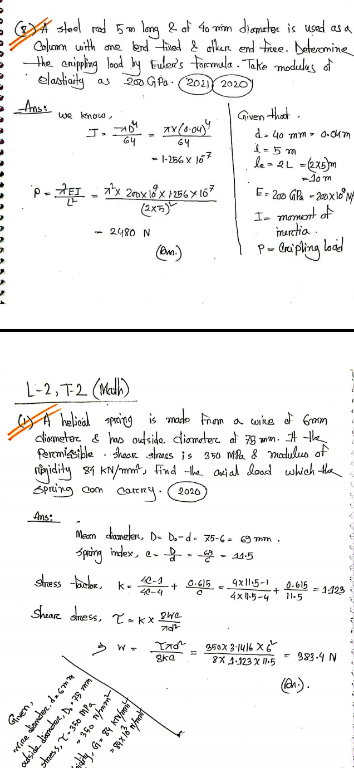 (8) A steel rod 5 m long & of 40 mm diameter is used as a
Column with one end fixed & other end free. Determine
the crippling load by Euler's formula. Take modulus of
elasticity as 200 GPa. (2021) (2020)
Ans:
we know,
I = πD⁴/64 = π×(0.04)⁴/64
= 1.256 × 10⁻⁷
P = π²EI/L² = π² × 200×10⁹ × 1.256 × 10⁻⁷/(2×5)²
= 2480 N
(Ans.)
Given that.
d = 40 mm = 0.04m
l = 5 m
le = 2L = (2×5)m
= 10 m
E = 200 GPa = 200×10⁹ N/
I = moment of
inertia.
P = Crippling Load
L-2, T-2 (Math)
(1) A helical spring is made from a wire of 6mm
diameter & has outside diameter of 75 mm. If the
Permissible shear stress is 350 MPa & modulus of
rigidity 84 KN/mm², Find the axial load which the
spring can carry. (2020)
Ans:
Mean diameter, D = D₀ - d = 75-6 = 69 mm.
spring index, c = D/d = 69/6 = 11.5
stress factor, K = 4C-1/4C-4 + 0.615/C = 4×11.5-1/4×11.5-4 + 0.615/11.5 = 1.123
Shear stress, τ = K × 8WC/πd²
⇒ W = τπd²/8KC = 350×3.1416×6²/8×1.123×11.5 = 383.4 N
(Ans.).
Given,
wire diameter, d = 6 mm
outside diameter, D₀ = 75 mm
stress, τ = 350 MPa
= 350 N/mm²
G = 84 KN/mm²
= 84×10³ N/mm²